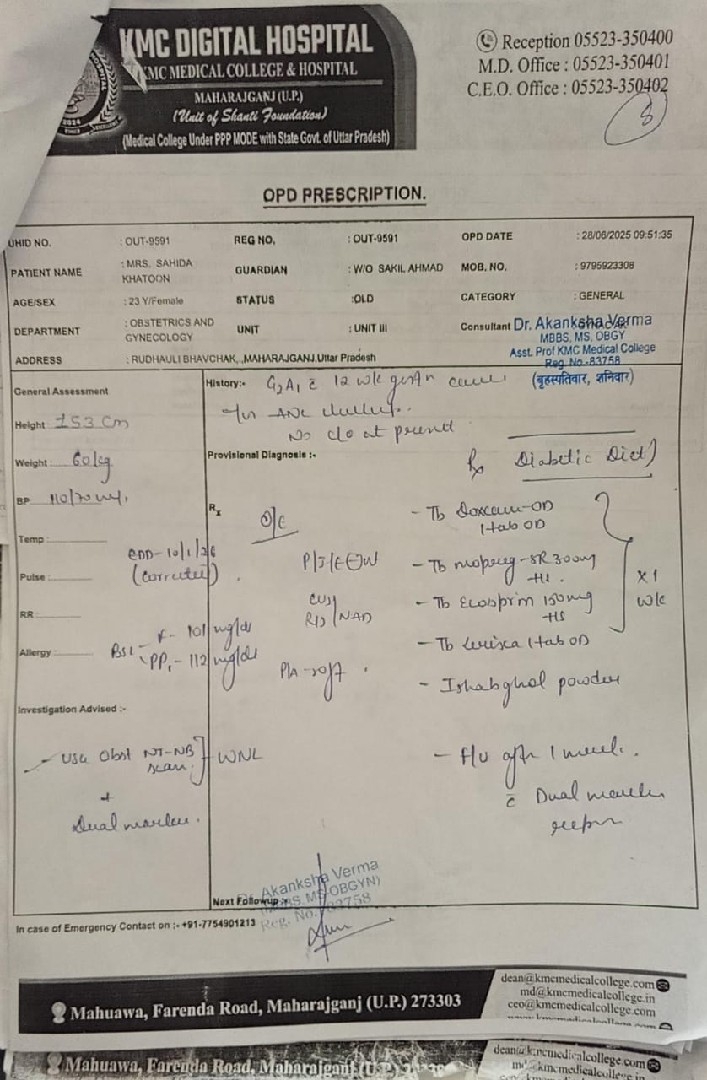 KMC DIGITAL HOSPITAL
KMC MEDICAL COLLEGE & HOSPITAL
MAHARAJGANJ (U.P.)
(Unit of Shanti Foundation)
(Medical College Under PPP MODE with State Govt. of Uttar Pradesh)
Reception 05523-350400
M.D. Office : 05523-350401
C.E.O. Office : 05523-350402
OPD PRESCRIPTION.
UHID NO. : OUT-9591 REG NO. : OUT-9591 OPD DATE : 28/06/2025 09:51:35
PATIENT NAME : MRS. SAHIDA KHATOON GUARDIAN : W/O SAKIL AHMAD MOB. NO. : 9795923308
AGE/SEX : 23 Y/Female STATUS :OLD CATEGORY : GENERAL
DEPARTMENT : OBSTETRICS AND GYNECOLOGY UNIT : UNIT III Consultant Dr. Akanksha Verma
MBBS, MS, OBGY
Asst. Prof KMC Medical College
Reg No.-83758
(बृहस्पतिवार, शनिवार)
ADDRESS : RUDHAULI BHAVCHAK, ,MAHARAJGANJ,Uttar Pradesh
General Assessment
Height 153 cm
Weight 60 kg
BP 110/70
Temp
Pulse
RR
Allergy
EDD - 10/1/26
(corrected)
BSL F - 101 mg/dl
PP - 112 mg/dl
Investigation Advised :-
USG Obst NT-NB scan } WNL
+
Dual marker.
History:- G2A1 c̄ 12 wk
for ANC checkup.
No c/o at present
Provisional Diagnosis :-
Rx
O/E
CVS
R/S NAD
P/A - soft
Rx Diabetic Diet
- Tb OD
1 tab OD
- Tb SR 300mg
HS.
- Tb Ecosprin 150mg
HS
x 1
wk
- Tb 1 tab OD
- Ishabghol powder
- F/U after 1 week.
c̄ Dual marker
report
Next Followup :-
Dr. Akanksha Verma
(MBBS, MS, OBGYN)
Reg. No. 83758
In case of Emergency Contact on :- +91-7754901213
Mahuawa, Farenda Road, Maharajganj (U.P.) 273303
dean@kmcmedicalcollege.com
md@kmcmedicalcollege.in
ceo@kmcmedicalcollege.com
Mahuawa, Farenda Road, Maharajganj (U.P.)
dean@kmcmedicalcollege.com